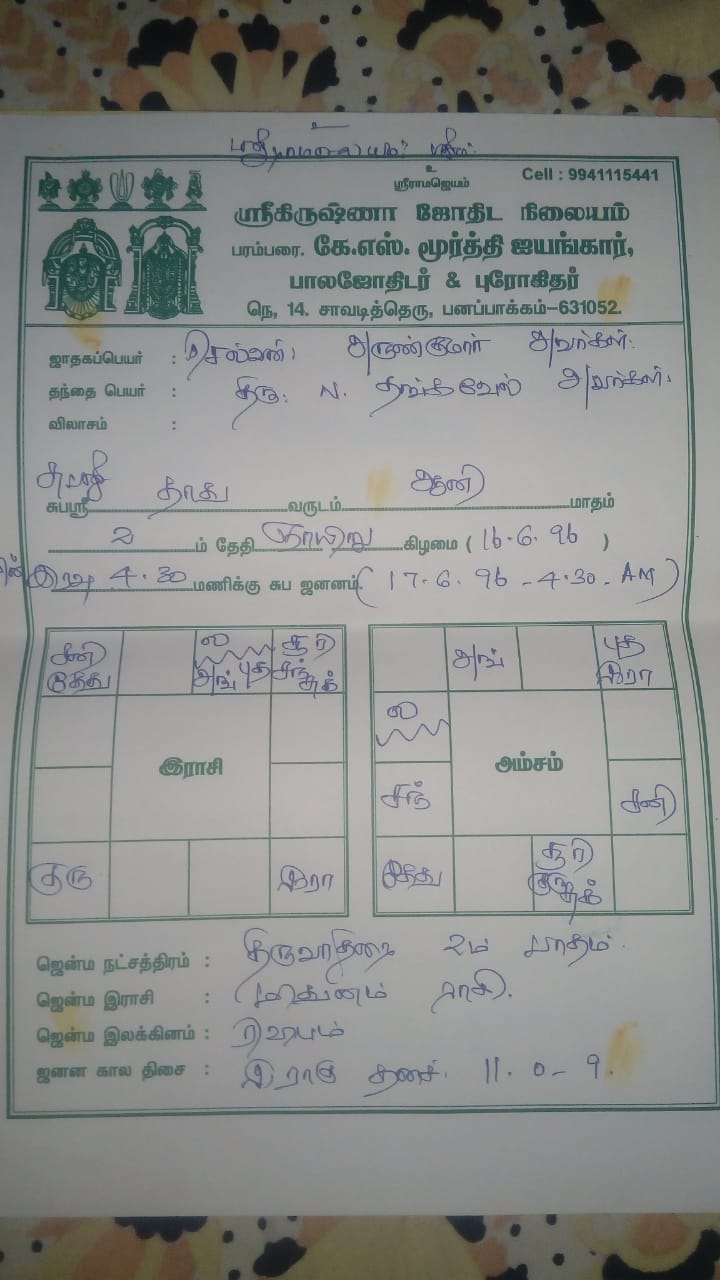 உ
ஸ்ரீராமஜெயம்
Cell : 9941115441
ஸ்ரீகிருஷ்ணா ஜோதிட நிலையம்
பரம்பரை. கே.எஸ். மூர்த்தி ஐயங்கார்,
பாலஜோதிடர் & புரோகிதர்
நெ, 14. சாவடித்தெரு, பனப்பாக்கம்-631052.
ஜாதகப்பெயர் : செல்வன்: அருண்குமார் அவர்கள்.
தந்தை பெயர் : திரு: N. தங்கவேல் அவர்கள்.
விலாசம் :
சுபஸ்ரீ தாது வருடம் ஆனி மாதம்
2 ம் தேதி ஞாயிறு கிழமை ( 16.6.96 )
இரவு 4.30 மணிக்கு சுப ஜனனம். ( 17.6.96 - 4.30 - AM )
சனி கேது
ல அங் புத
சூரி சந் சுக்
இராசி
குரு
இரா
அங்
புத இரா
ல
அம்சம்
சந்
சனி
கேது
சூரி குரு சுக்
ஜென்ம நட்சத்திரம் : திருவாதிரை 2ம் பாதம்.
ஜென்ம இராசி : மிதுனம் ராசி.
ஜென்ம இலக்கினம் : ரிஷபம்
ஜனன கால திசை : இராகு தசை. 11. 0 - 9.